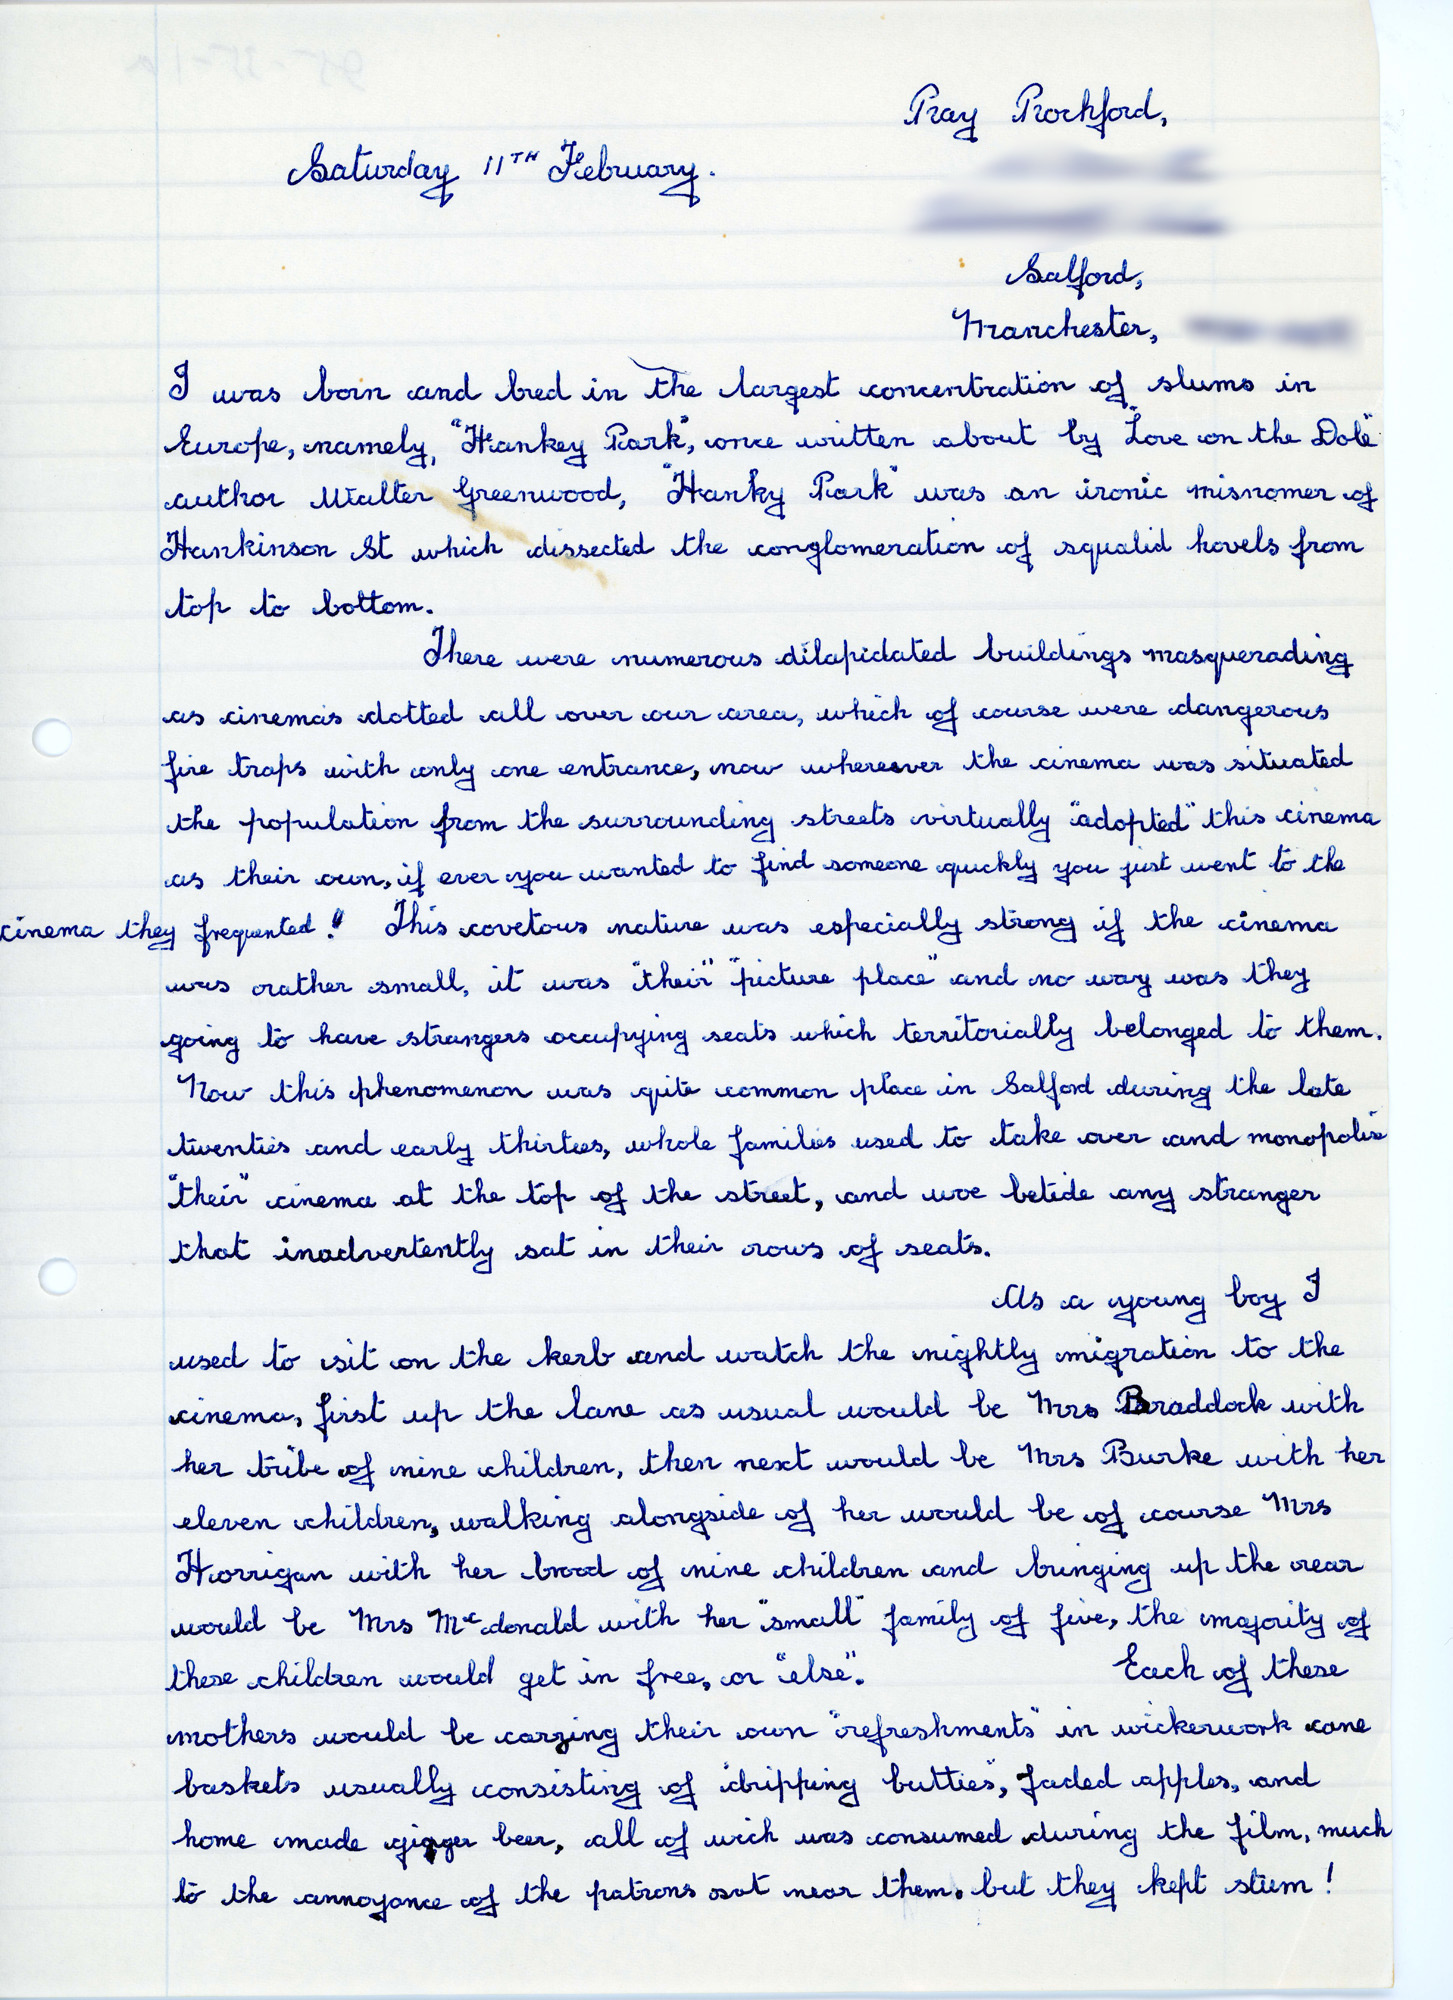 Ray Rochford,
Saturday 11TH February.
Salford,
Manchester,
I was born and bred in the largest concentration of slums in
Europe, namely, "Hankey Park", once written about by "Love on the Dole"
author Walter Greenwood, "Hanky Park" was an ironic misnomer of
Hankinson St which dissected the conglomeration of squalid hovels from
top to bottom.
There were numerous dilapidated buildings masquerading
as cinemas dotted all over our area, which of course were dangerous
fire traps with only one entrance, now whereever the cinema was situated
the population from the surrounding streets virtually "adopted" this cinema
as their own, if ever you wanted to find someone quickly you just went to the
cinema they frequented! This covetous nature was especially strong if the cinema
was rather small, it was "their" "picture place" and no way was they
going to have strangers occupying seats which territorially belonged to them.
Now this phenomenon was quite common place in Salford during the late
twenties and early thirties, whole families used to take over and monopolise
"their" cinema at the top of the street, and woe betide any stranger
that inadvertently sat in their rows of seats.
As a young boy I
used to sit on the kerb and watch the nightly migration to the
cinema, first up the lane as usual would be Mrs Braddock with
her tribe of nine children, then next would be Mrs Burke with her
eleven children, walking alongside of her would be of course Mrs
Horrigan with her brood of nine children and bringing up the rear
would be Mrs Mcdonald with her "small" family of five, the majority of
these children would get in free, or "else". Each of these
mothers would be carzing their own "refreshments" in wickerwork cane
baskets usually consisting of "dripping butties", faded apples, and
home made ginger beer, all of wich was consumed during the film, much
to the annoyance of the patrons sat near them, but they kept stum!